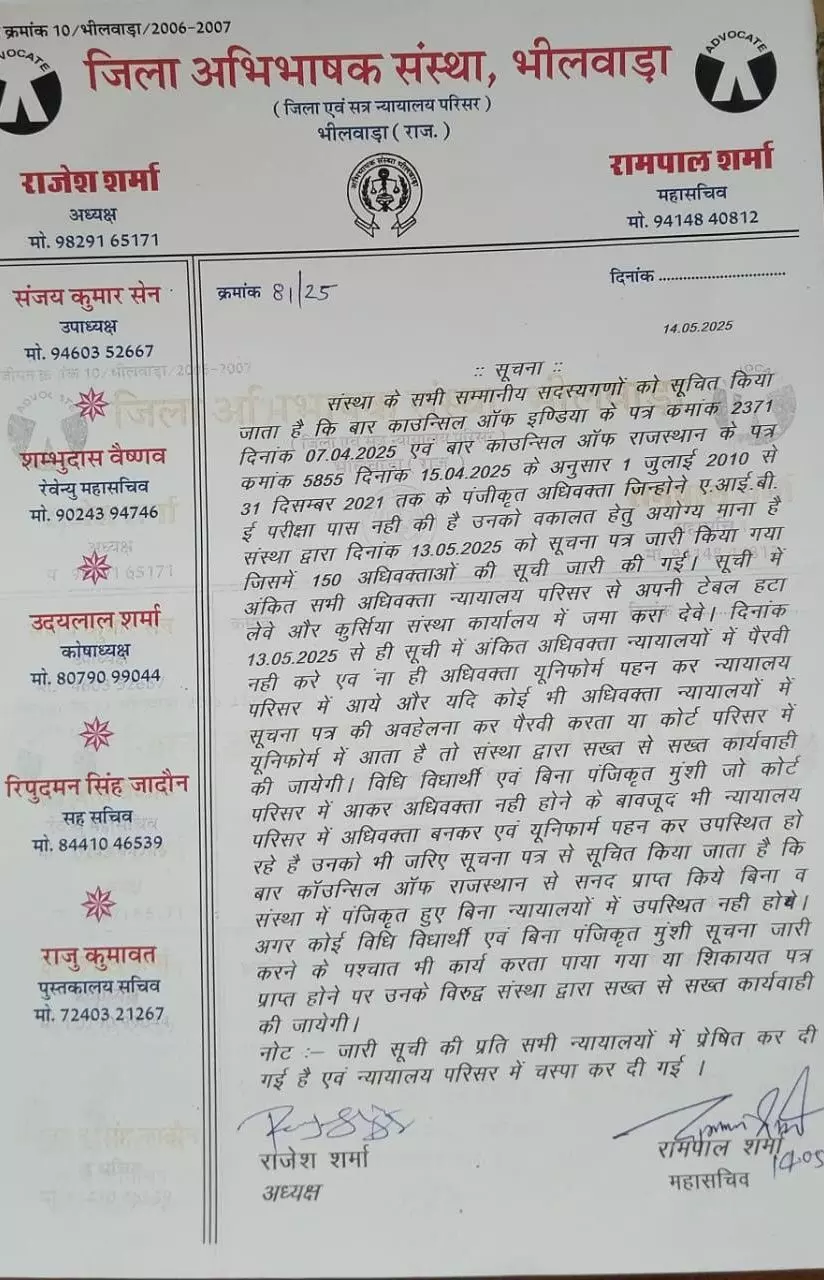 क्रमांक 10/भीलवाड़ा/2006-2007
ADVOCATE
जिला अभिभाषक संस्था, भीलवाड़ा
ADVOCATE
( जिला एवं सत्र न्यायालय परिसर )
भीलवाड़ा ( राज. )
राजेश शर्मा
अध्यक्ष
मो. 98291 65171
रामपाल शर्मा
महासचिव
मो. 94148 40812
संजय कुमार सेन
उपाध्यक्ष
मो. 94603 52667
शम्भुदास वैष्णव
रेवेन्यु महासचिव
मो. 90243 94746
उदयलाल शर्मा
कोषाध्यक्ष
मो. 80790 99044
रिपुदमन सिंह जादौन
सह सचिव
मो. 84410 46539
राजु कुमावत
पुस्तकालय सचिव
मो. 72403 21267
क्रमांक 81/25
दिनांक ................................
14.05.2025
:: सूचना ::
संस्था के सभी सम्मानीय सदस्यगणों को सूचित किया
जाता है कि बार काउन्सिल ऑफ इण्डिया के पत्र कमांक 2371
दिनांक 07.04.2025 एवं बार कोउन्सिल ऑफ राजस्थान के पत्र
कमांक 5855 दिनांक 15.04.2025 के अनुसार 1 जुलाई 2010 से
31 दिसम्बर 2021 तक के पंजीकृत अधिवक्ता जिन्होने ए.आई.बी.
ई परीक्षा पास नही की है उनको वकालत हेतु अयोग्य माना है
संस्था द्वारा दिनांक 13.05.2025 को सूचना पत्र जारी किया गया
जिसमें 150 अधिवक्ताओं की सूची जारी की गई। सूची में
अंकित सभी अधिवक्ता न्यायालय परिसर से अपनी टेबल हटा
लेवे और कुर्सिया संस्था कार्यालय में जमा करा देवे। दिनांक
13.05.2025 से ही सूची में अंकित अधिवक्ता न्यायालयों में पैरवी
नही करे एवं ना ही अधिवक्ता यूनिफोर्म पहन कर न्यायालय
परिसर में आये और यदि कोई भी अधिवक्ता न्यायालयों में
सूचना पत्र की अवहेलना कर पैरवी करता या कोर्ट परिसर में
यूनिफोर्म में आता है तो संस्था द्वारा सख्त से सख्त कार्यवाही
की जायेगी। विधि विधार्थी एवं बिना पंजिकृत मुंशी जो कोर्ट
परिसर में आकर अधिवक्ता नही होने के बावजूद भी न्यायालय
परिसर में अधिवक्ता बनकर एवं यूनिफार्म पहन कर उपस्थित हो
रहे है उनको भी जरिए सूचना पत्र से सूचित किया जाता है कि
बार कॉउन्सिल ऑफ राजस्थान से सनद प्राप्त किये बिना व
संस्था में पंजिकृत हुए बिना न्यायालयों में उपस्थित नही होवे।
अगर कोई विधि विधार्थी एवं बिना पंजिकृत मुंशी सूचना जारी
करने के पश्चात भी कार्य करता पाया गया या शिकायत पत्र
प्राप्त होने पर उनके विरुद्व संस्था द्वारा सख्त से सख्त कार्यवाही
की जायेगी।
नोट :– जारी सूची की प्रति सभी न्यायालयों में प्रेषित कर दी
गई है एवं न्यायालय परिसर में चस्पा कर दी गई ।
राजेश शर्मा
अध्यक्ष
रामपाल शर्मा
महासचिव